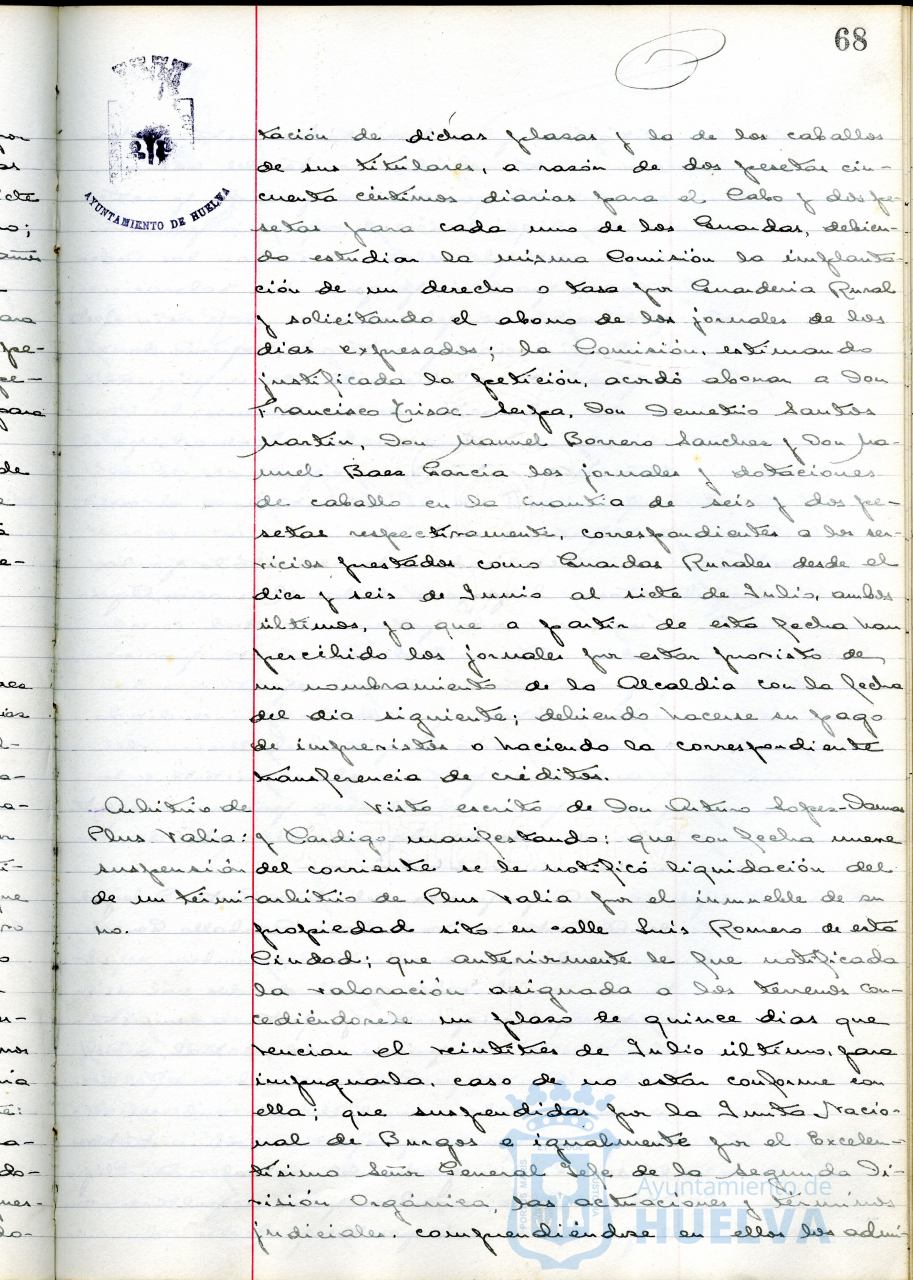 68
AYUNTAMIENTO DE HUELVA
tación de dichas plazas y la de los caballos
de sus titulares, a razón de dos pesetas cin-
cuenta céntimos diarias para el Cabo y dos pe-
setas para cada uno de los Guardas, debien-
do estudiar la misma Comisión la implanta-
ción de un derecho o tasa por Guardería Rural
y solicitando el abono de los jornales de los
días expresados; la Comisión, estimando
justificada la petición, acordó abonar a Don
Francisco Serpa, Don Demetrio Santos
Martín, Don Manuel Borrero Sanchez y Don Ma-
nuel Baez García los jornales y dotaciones
de caballo en la cuantía de seis y dos pe-
setas respectivamente, correspondientes a los ser-
vicios prestados como Guardas Rurales desde el
diez y seis de Junio al siete de Julio, ambos
últimos, ya que a partir de esta fecha han
percibido los jornales por estar provisto de
un nombramiento de la Alcaldía con la fecha
del día siguiente; debiendo hacerse su pago
de imprevistos o haciendo la correspondiente
transferencia de créditos.
Arbitrio de
Plus Valía:
suspensión
de un térmi-
no.
Visto escrito de Don Arturo Lopez-Damas
y Cardigo manifestando: que con fecha nueve
del corriente se le notificó liquidación del
arbitrio de Plus Valía por el inmueble de su
propiedad sito en calle Luis Romero de esta
Ciudad; que anteriormente le fue notificada
la valoración asignada a los terrenos con-
cediéndosele un plazo de quince días que
vencían el veintitres de Julio último, para
impugnarla, caso de no estar conforme con
ella; que suspendidas por la Junta Nacio-
nal de Burgos e igualmente por el Excelen-
tísimo Señor General Jefe de la Segunda Di-
visión Orgánica, las actuaciones y términos
judiciales, comprendiéndose en ellos los admi-
Ayuntamiento de
HUELVA